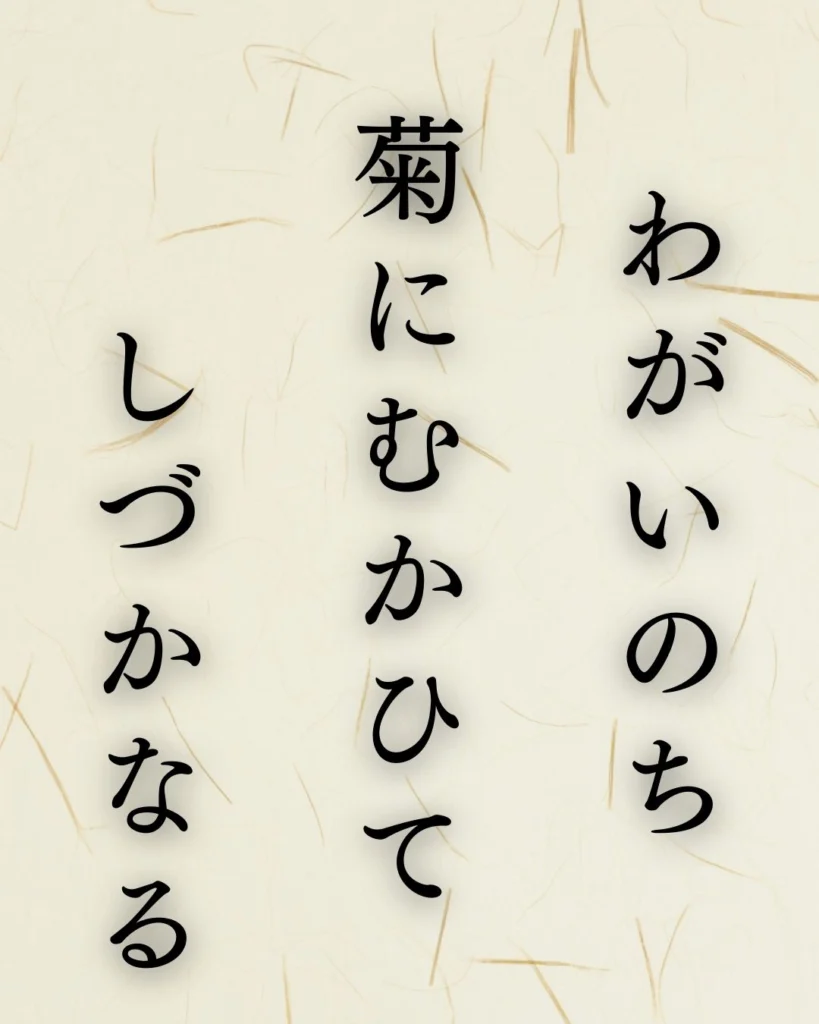 わがいのち
菊にむかひて
しづかなる